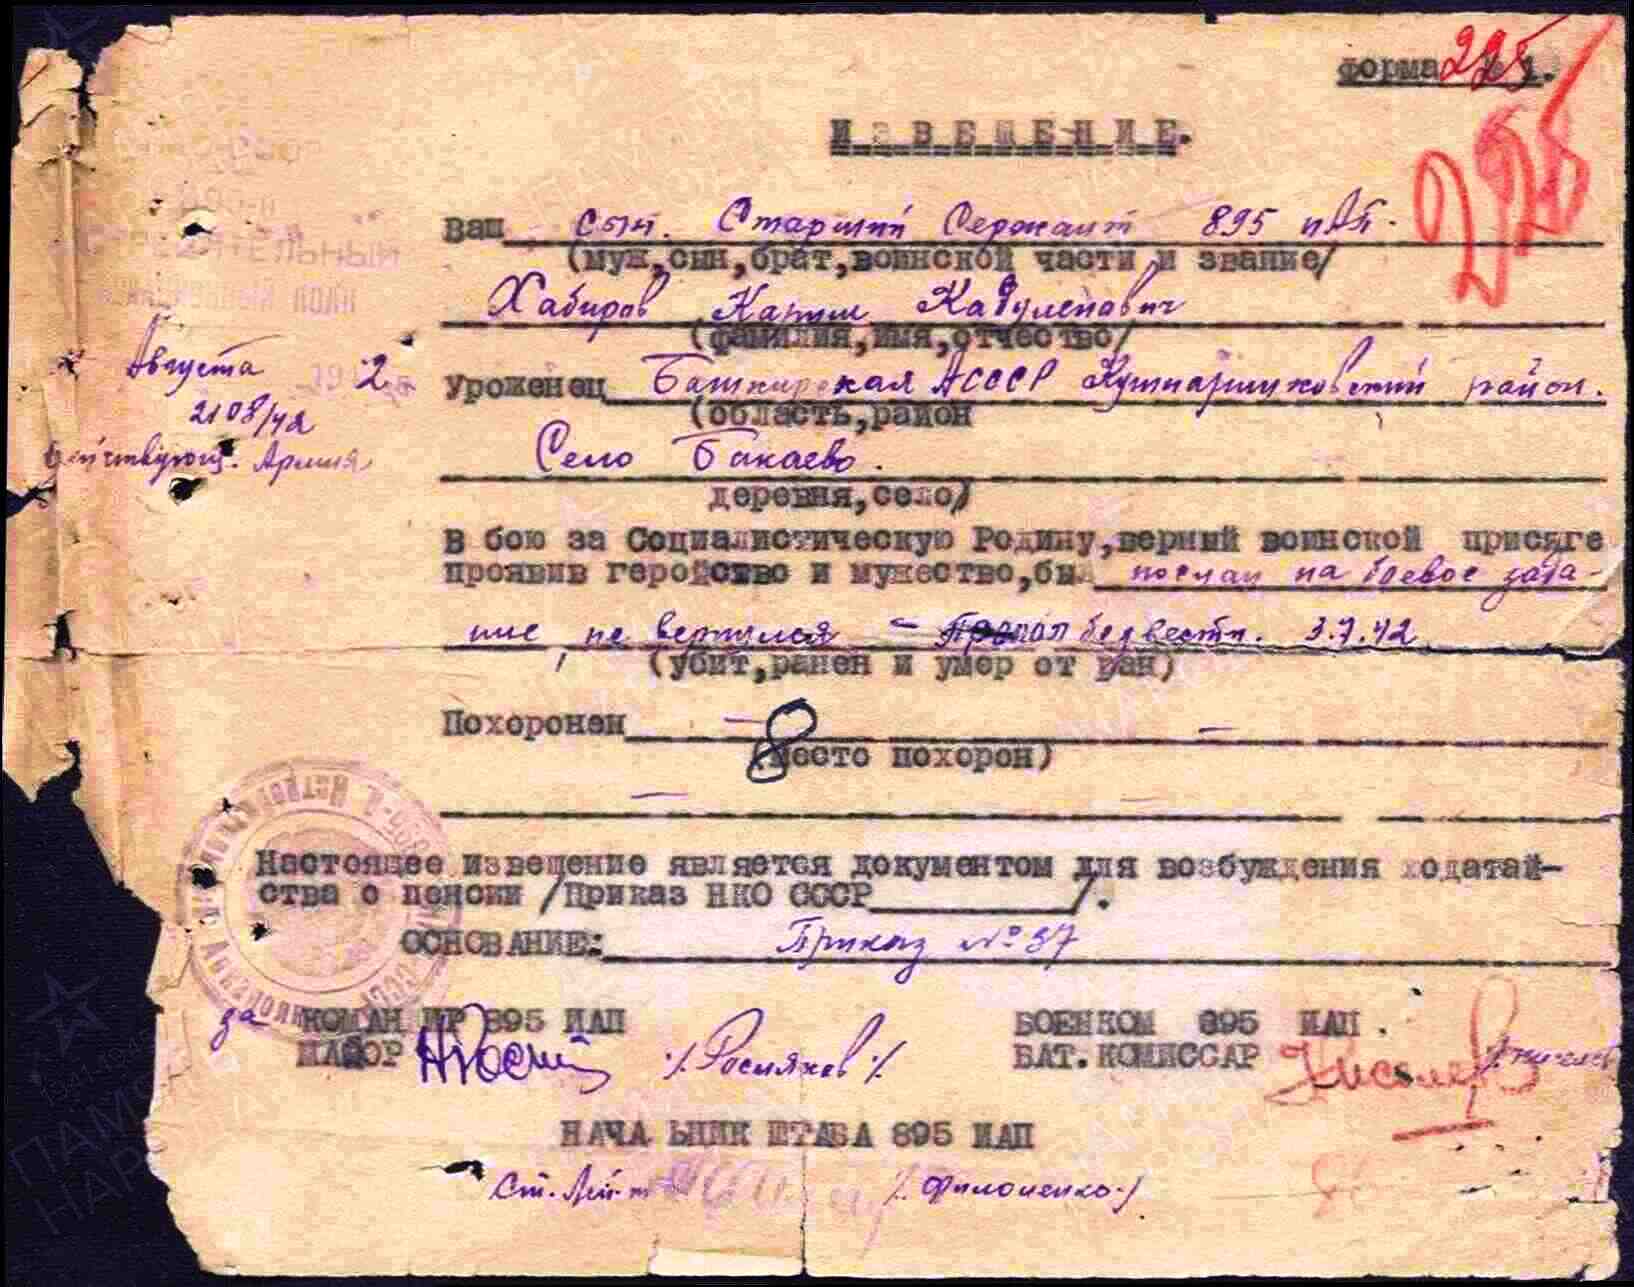 форма № 1.
225
225
ИЗВЕЩЕНИЕ.
Ваш сын. Старший Сержант 895 иАП.
(муж,сын,брат,воинской части и звание/
Хабиров Карим
(фамилия,имя,отчество/
Августа 1942
2108/42
Армия
Уроженец Башкирская АСССР Кушнаришковский район.
(область,район
Село Бакаево.
деревня,село)
В бою за Социалистическую Родину,верный воинской присяге
проявив геройство и мужество,был послан на боевое зада-
ние, не вернулся - Пропал безвести. 3.7.42
(убит,ранен и умер от ран)
Похоронен
8
(место похорон)
Настоящее извещение является документом для возбуждения ходатай-
ства о пенсии /Приказ НКО СССР /.
ОСНОВАНИЕ: Приказ № 37
за КОМАНДИР 895 ИАП ВОЕНКОМ 895 ИАП.
МАЙОР /.Росляков./ БАТ.КОМИССАР Киселев
НАЧАЛЬНИК ШТАБА 895 ИАП
Ст. Лей-т /.Филоненко./